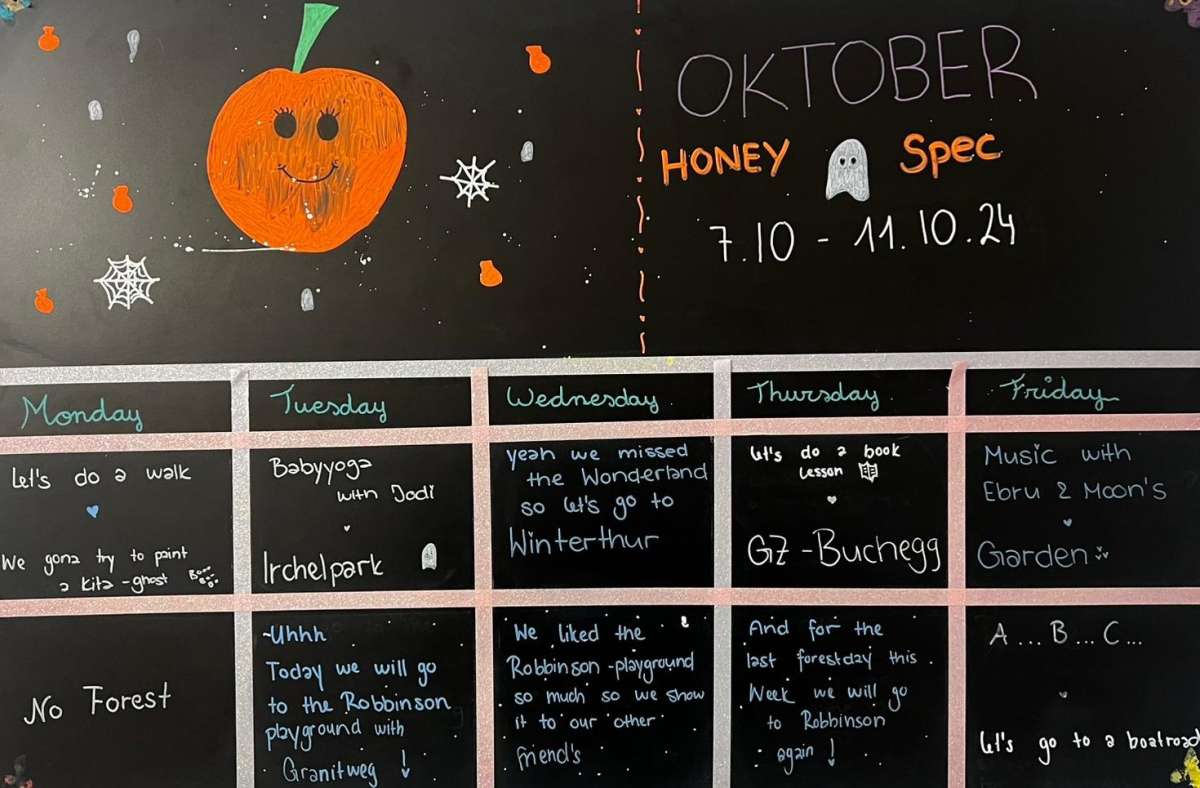 OKTOBER
HONEY Spec
7.10 - 11.10.24
Monday
Tuesday
Wednesday
Thursday
Friday
Let's do a walk
We gona try to paint
a kita-ghost
Babyyoga
with Dodi
Irchelpark
yeah we missed
the Wonderland
so let's go to
Winterthur
Let's do a book
Lesson
GZ-Buchegg
Music with
Ebru & Moon's
Garden
No Forest
-Uhhh
Today we will go
to the Robbinson
playground with
Granitweg !
We liked the
Robbinson-playground
so much so we show
it to our other
friend's
And for the
last forestday this
Week we will go
to Robbinson
again !
A...B...C...
Let's go to a boatroad